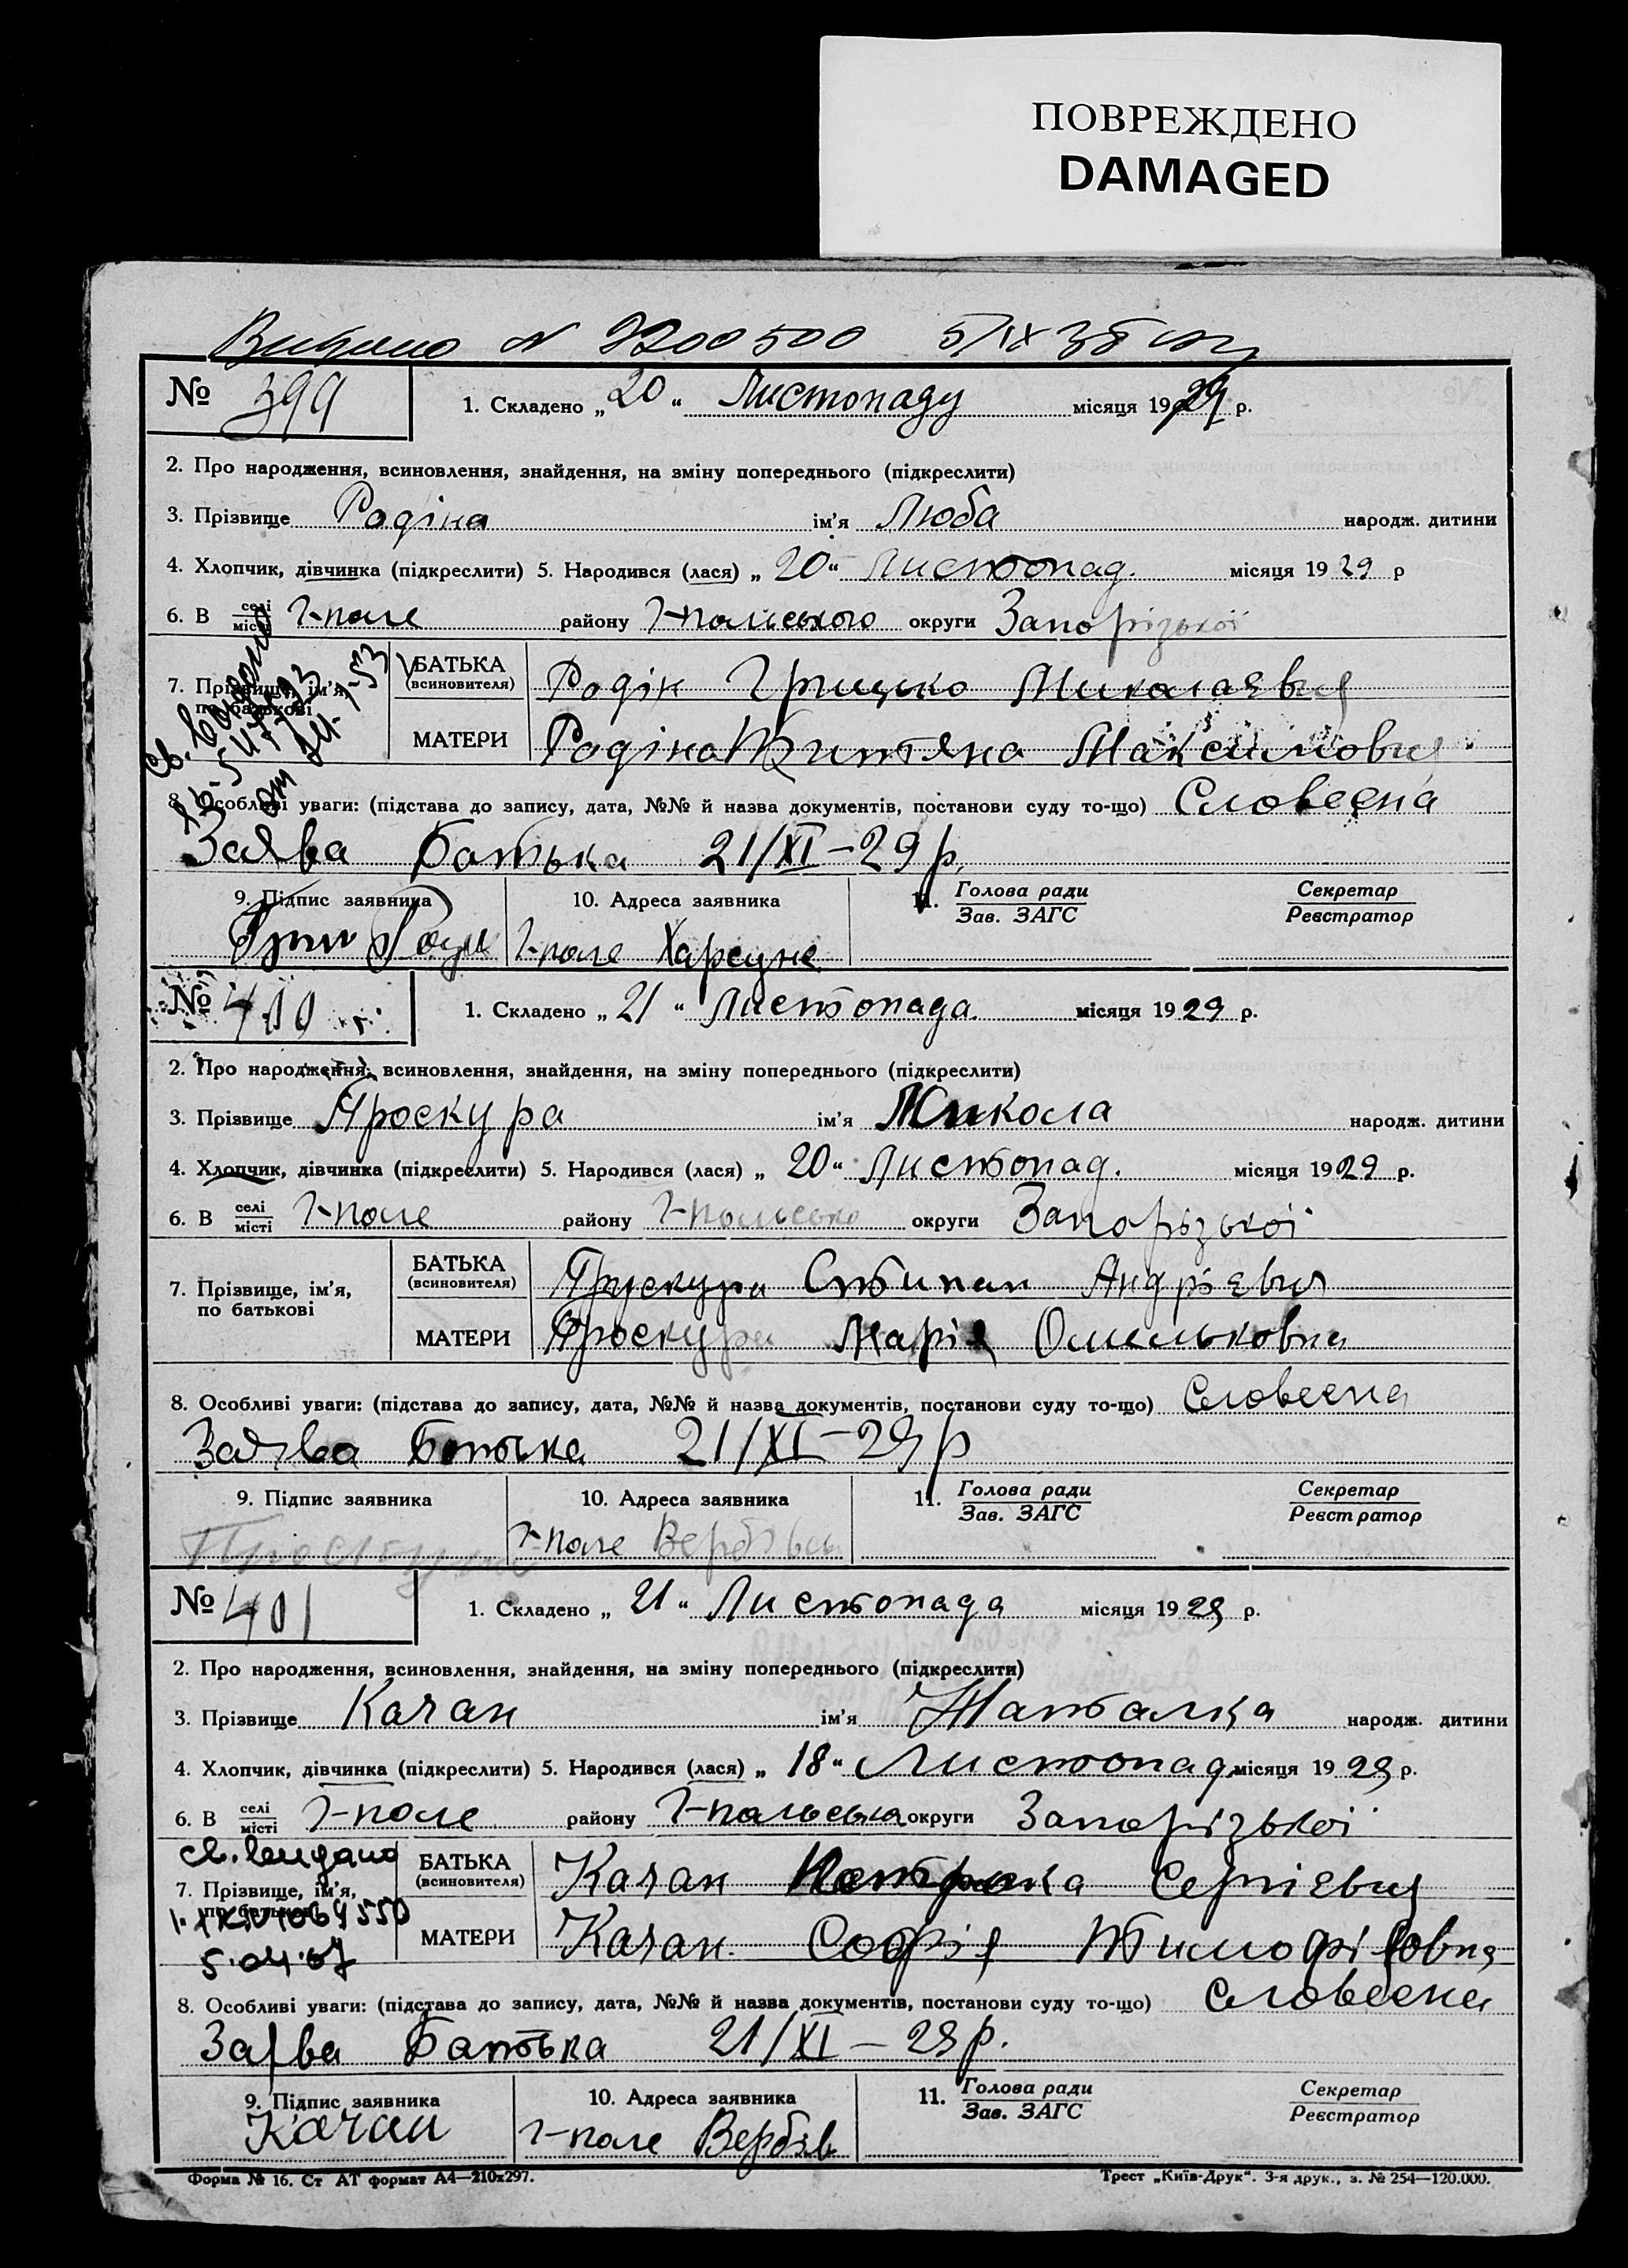 ПОВРЕЖДЕНО
DAMAGED
Видано N 5/IX
№ 399 1. Складено „20“ Листопаду місяця 1929 р.
2. Про народження, всиновлення, знайдення, на зміну попереднього (підкреслити)
3. Прізвище Родіна ім’я Люба народж. дитини
4. Хлопчик, дівчинка (підкреслити) 5. Народився (лася) „20“ Листопад. місяця 1929 р
6. В селі місті Г-поле району Г-польського округи Запорізької
7. Прізвище, ім’я, по батькові
БАТЬКА (всиновителя) Родін Грицько Миколаевич
МАТЕРИ Родіна Титяна Максимовна
8. Особливі уваги: (підстава до запису, дата, №№ й назва документів, постанови суду то-що) Словесна
Заява Батька 21/XI–29 р.
9. Підпис заявника 10. Адреса заявника 11. Голова ради Зав. ЗАГС Секретар Реєстратор
Г-поле
№ 400 1. Складено „21“ Листопада. місяця 1929 р.
2. Про народження, всиновлення, знайдення, на зміну попереднього (підкреслити)
3. Прізвище Проскура ім’я Микола народж. дитини
4. Хлопчик, дівчинка (підкреслити) 5. Народився (лася) „20“ Листопад. місяця 1929 р.
6. В селі місті Г-поле району Г-польсько округи Запорізької
7. Прізвище, ім’я, по батькові
БАТЬКА (всиновителя) Проскура Стипан Андріевич
МАТЕРИ Проскура Марія Омильковна
8. Особливі уваги: (підстава до запису, дата, №№ й назва документів, постанови суду то-що) Словесна
Заява Батька 21/XI–29 р
9. Підпис заявника 10. Адреса заявника 11. Голова ради Зав. ЗАГС Секретар Реєстратор
Проскура Г-поле Вербівсь
№ 401 1. Складено „21“ Листопада місяця 1929 р.
2. Про народження, всиновлення, знайдення, на зміну попереднього (підкреслити)
3. Прізвище Качан ім’я Наталка народж. дитини
4. Хлопчик, дівчинка (підкреслити) 5. Народився (лася) „18“ Листопад місяця 1929 р.
6. В селі місті Г-поле району Г-польська округи Запорізької
7. Прізвище, ім’я, по батькові
БАТЬКА (всиновителя) Качан Сергіевич
МАТЕРИ Качан Софія Тимофіговна
5.04.07
8. Особливі уваги: (підстава до запису, дата, №№ й назва документів, постанови суду то-що) Словесна
Заява Батька 21/XI – 29 р.
9. Підпис заявника 10. Адреса заявника 11. Голова ради Зав. ЗАГС Секретар Реєстратор
Качан Г-поле Вербів
Форма № 16. Ст АТ формат А4—210х297. Трест „Київ-Друк“. 3-я друк., з. № 254—120.000.